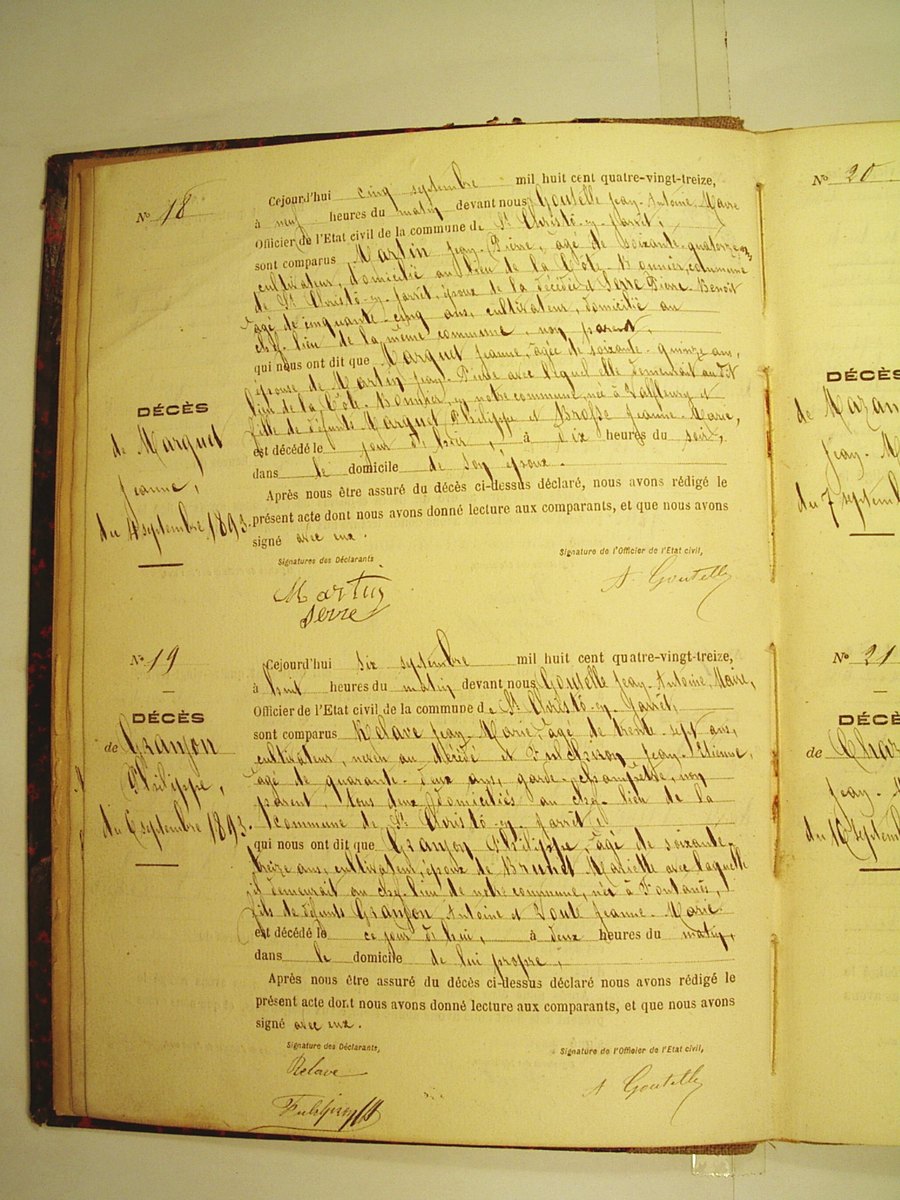 N° 18
DÉCÈS
de Marguet
Jeanne,
du 4 septembre 1893.
Cejourd'hui cinq septembre mil huit cent quatre-vingt-treize,
à neuf heures du matin devant nous Goutelle Jean-Antoine, Maire
Officier de l'Etat civil de la commune de St Christô-en-Jarret,
sont comparus Martin Jean-Pierre, agé de soixante-quatorze ans
cultivateur, domicilié au lieu de la Côte-Bonnier, commune
de St Christô-en-Jarret, époux de la décédée et Serre Pierre-Benoit
agé de cinquante-cinq ans, cultivateur, domicilié au
chef-lieu de la même commune, non parent,
qui nous ont dit que Marguet Jeanne, agée de soixante-quinze ans,
épouse de Martin Jean-Pierre avec lequel elle demeurait au dit
lieu de la Côte- en notre commune, née à et
fille de défunts Marguet Philippe et Brosse Jeanne-Marie,
est décédé le jour d'hier, à dix heures du soir,
dans le domicile de son époux.
Après nous être assuré du décès ci-dessus déclaré, nous avons rédigé le
présent acte dont nous avons donné lecture aux comparants, et que nous avons
signé avec eux.
Signatures des Déclarants
Signature de l'Officier de l'Etat civil,
Martin
Serre
A Goutelle
N° 19
DÉCÈS
de Granjon
Philippe,
du 6 septembre 1893.
Cejourd'hui six septembre mil huit cent quatre-vingt-treize,
à huit heures du matin devant nous Goutelle Jean-Antoine, Maire,
Officier de l'Etat civil de la commune de St Christô-en-Jarret,
sont comparus Relave Jean-Marie agé de trente sept ans,
cultivateur, neveu au décédé et Fulchiron Jean-Etienne,
agé de quarante-deux ans, garde-champêtre, non
parent, tous deux domiciliés au chef-lieu de la
commune de St Christô-en-Jarret
qui nous ont dit que Granjon Philippe, agé de soixante-
treize ans, cultivateur, époux de Brunet Mariette avec laquelle
il demeurait au chef-lieu de notre commune, né à Fontanès,
fils de défunts Granjon, Antoine et Jeanne-Marie
est décédé le ce jour d'hui, à deux heures du matin,
dans le domicile de lui propre,
Après nous être assuré du décès ci-dessus déclaré nous avons rédigé le
présent acte dont nous avons donné lecture aux comparants, et que nous avons
signé avec eux.
Signature des Déclarants,
Signature de l'Officier de l'Etat civil,
Relave
Fulchiron
A Goutelle
N° 20
DÉCÈS
de Mazan
Jean-M
du 7 septemb
N° 21
DÉCÈS
de
Jean-
du 16 septemb